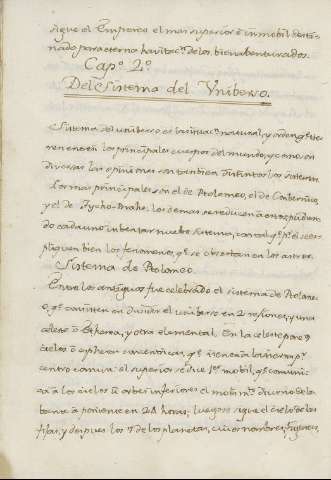 sigue el Empireo el mas superior é inmobil desti-
nado para eterna havitac.ⁿ de los bienabenturados.
Cap.º 2.º
Del Sistema del Vniberso.
Sistema del universo es la situac.ⁿ natural, y orden q.e tie-
nen entre si los principales cuerpos del mundo, y como son
diversas las opiniones son tambien distintos los sistemas.
Los mas principales son el de Ptolomeo, el de Copernico,
y el de Tycho-Brahe. los demas se reducen à estos, pudien-
do cada uno inbentar nuebo sistema, con tal q.e p.r el se es-
pliquen bien los fenomenos, q.e se observan en los astros.
Sistema de Ptolomeo.
Entre los antiguos fue celebrado el sistema de Ptolome-
o q.e consiste en dividir el universo en 2 rexiones, y una
celeste ò Etherea, y otra elemental. En la celeste pone
cielos ò espheras concentricas, q.e tienen à la tierra p.r
centro comun: el superior se dice 1.r mobil, q.e comuni-
ca à los cielos ù orbes inferiores el mobim.to diurno de le-
bante à poniente en 24 horas; luego se sigue el cielo de las
fijas, y despues los 7 de los planetas, cuios nombres, figuras,